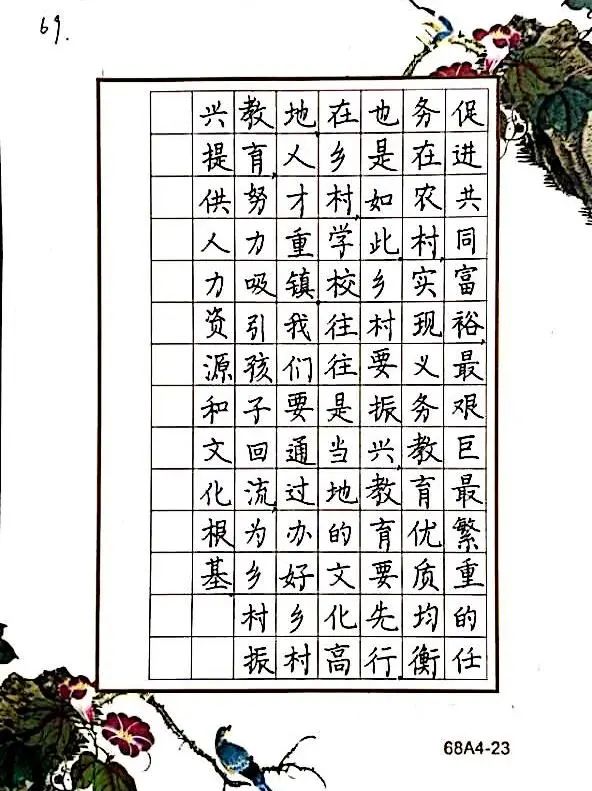 69.
促进共同富裕,最艰巨最繁重的任
务在农村,实现义务教育优质均衡
也是如此.乡村要振兴,教育要先行.
在乡村,学校往往是当地的文化高
地,人才重镇.我们要通过办好乡村
教育,努力吸引孩子回流,为乡村振
兴提供人力资源和文化根基.
68A4-23